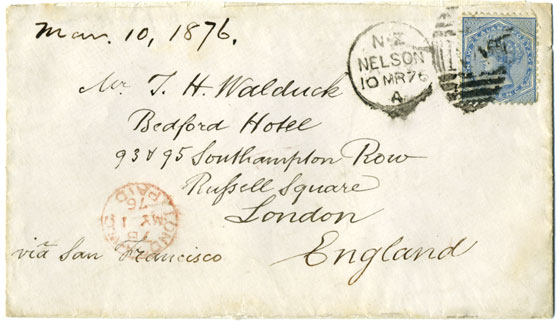 Mar. 10, 1876.
N·Z
NELSON
10 MR 76
A
Mr T. H. Walduck
Bedford Hotel
93 & 95 Southampton Row
Russell Square
London
England
via San Francisco
LONDON
MY 1
76
PAID